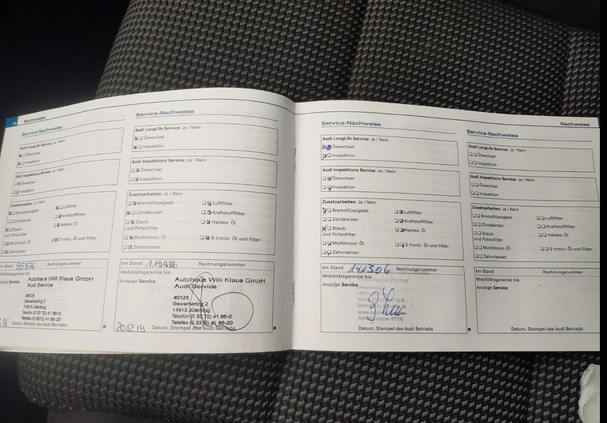 Nachweise
Service-Nachweise
Audi LongLife Service: Ja / Nein
Ölwechsel
Inspektion
Audi Inspektions Service: Ja / Nein
Ölwechsel
Inspektion
Zusatzarbeiten: Ja / Nein
Bremsflüssigkeit
Luftfilter
Zündkerzen
Kraftstofffilter
Staub
und Pollenfilter
Haldex Öl
Multitronic Öl
S tronic Öl und Filter
Zahnriemen
km Stand
Mobilitätsgarantie bis
Autohaus Willi Klaus GmbH
Audi Service
14913 Jüterbog
Datum, Stempel des Audi Betriebs
Service-Nachweise
Audi LongLife Service: Ja / Nein
Ölwechsel
Inspektion
Audi Inspektions Service: Ja / Nein
Ölwechsel
Inspektion
Zusatzarbeiten: Ja / Nein
Bremsflüssigkeit
Luftfilter
Zündkerzen
Kraftstofffilter
Staub
und Pollenfilter
Haldex Öl
Multitronic Öl
S tronic Öl und Filter
Zahnriemen
km Stand
Rechnungsnummer
Mobilitätsgarantie bis
Anzeige Service
Autohaus Willi Klaus GmbH
Audi Service
40125
14913 Jüterbog
20.12.19
Datum, Stempel des Audi Betriebs
Service-Nachweise
Audi LongLife Service: Ja / Nein
Ölwechsel
Inspektion
Audi Inspektions Service: Ja / Nein
Ölwechsel
Inspektion
Zusatzarbeiten: Ja / Nein
Bremsflüssigkeit
Luftfilter
Zündkerzen
Kraftstofffilter
Staub
und Pollenfilter
Haldex Öl
Multitronic Öl
S tronic Öl und Filter
Zahnriemen
km Stand 141306 Rechnungsnummer
Mobilitätsgarantie bis
Anzeige Service
Datum, Stempel des Audi Betriebs
Nachweise
Service-Nachweise
Audi LongLife Service: Ja / Nein
Ölwechsel
Inspektion
Audi Inspektions Service: Ja / Nein
Ölwechsel
Inspektion
Zusatzarbeiten: Ja / Nein
Bremsflüssigkeit
Luftfilter
Zündkerzen
Kraftstofffilter
Staub
und Pollenfilter
Haldex Öl
Multitronic Öl
S tronic Öl und Filter
Zahnriemen
km Stand
Rechnungsnummer
Mobilitätsgarantie bis
Anzeige Service
Datum, Stempel des Audi Betriebs